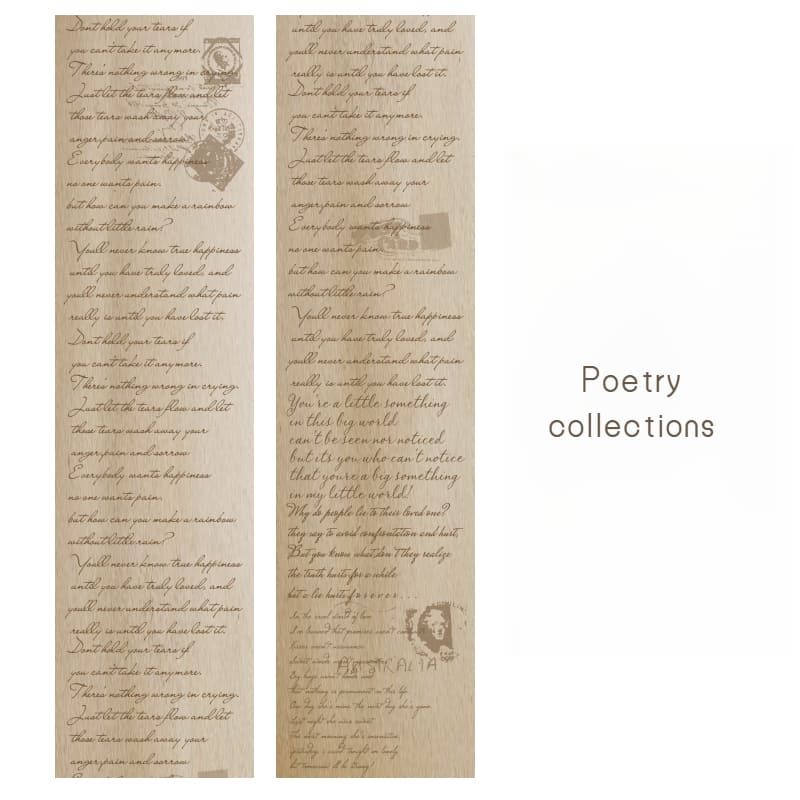 Dont hold your tears if
you cant take it anymore.
There's nothing wrong in crying.
Just let the tears flow and let
those tears wash away your
anger,pain and sorrow
Everybody wants happiness
no one wants pain.
but how can you make a rainbow
without little rain?
Youll never know true happiness
until you have truly loved, and
youll never understand what pain
really is until you have lost it.
Dont hold your tears if
you cant take it anymore.
There's nothing wrong in crying.
Just let the tears flow and let
those tears wash away your
anger,pain and sorrow
Everybody wants happiness
no one wants pain.
but how can you make a rainbow
without little rain?
Youll never know true happiness
until you have truly loved, and
youll never understand what pain
really is until you have lost it.
Dont hold your tears if
you cant take it anymore.
There's nothing wrong in crying.
Just let the tears flow and let
those tears wash away your
anger,pain and sorrow
until you have truly loved, and
youll never understand what pain
really is until you have lost it.
Dont hold your tears if
you cant take it anymore.
There's nothing wrong in crying.
Just let the tears flow and let
those tears wash away your
anger,pain and sorrow
Everybody wants happiness
no one wants pain.
but how can you make a rainbow
without little rain?
Youll never know true happiness
until you have truly loved, and
youll never understand what pain
really is until you have lost it.
You're a little something
in this big world
can't be seen nor noticed
but its you who can't notice
that you're a big something
in my little world!
Why do people lie to their loved one?
they say to avoid confrontation and hurt,
But you know what don't they realize
the truth hurts for a while
but a lie hurts forever...
In the cruel world of love
I've learned that promises aren't
Kisses aren't
that nothing is permanent in this life
One day she's mine the next day she's gone
Last night she was sweet
The next morning she's
but tomorrow ill be things!
AUSTRALIA
Poetry
collections